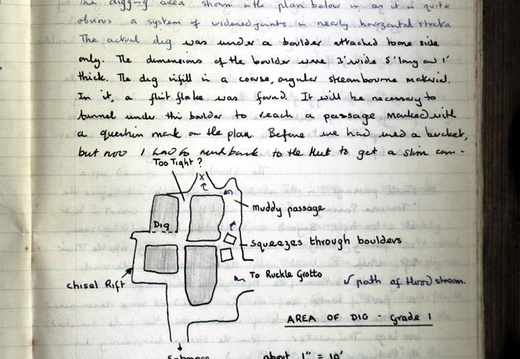 The digging area shown in the plan below is as it is quite
obvious a system of widened joints in nearly horizontal strata
The actual dig was under a boulder attached to one side
only. The dimensions of the boulder were 3' wide 5' long and 1'
thick. The dig infill is a coarse, angular streambourne material.
In it, a flint flake was found. It will be necessary to
tunnel under this boulder to reach a passage marked with
a question mark on the plan. Before we had used a bucket,
but now I had to back to the Hut to get a slim con-
Too Tight?
muddy passage
Dig
squeezes through boulders
To Ruckle Grotto
Chisel Rift
path of flood stream.
AREA OF DIG - Grade 1
about 1" = 10'